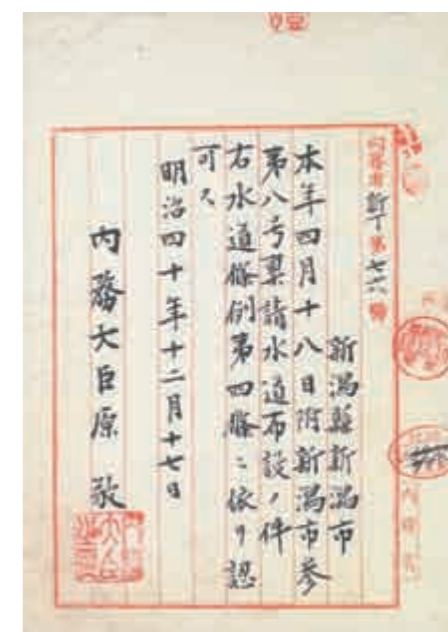 内務省新丁第七六號
新潟縣新潟市
本年四月十八日附新潟市参
第八号稟請水道布設ノ件
右水道條例第四條ニ依リ認
可ス
明治四十年十二月十七日
内務大臣原敬